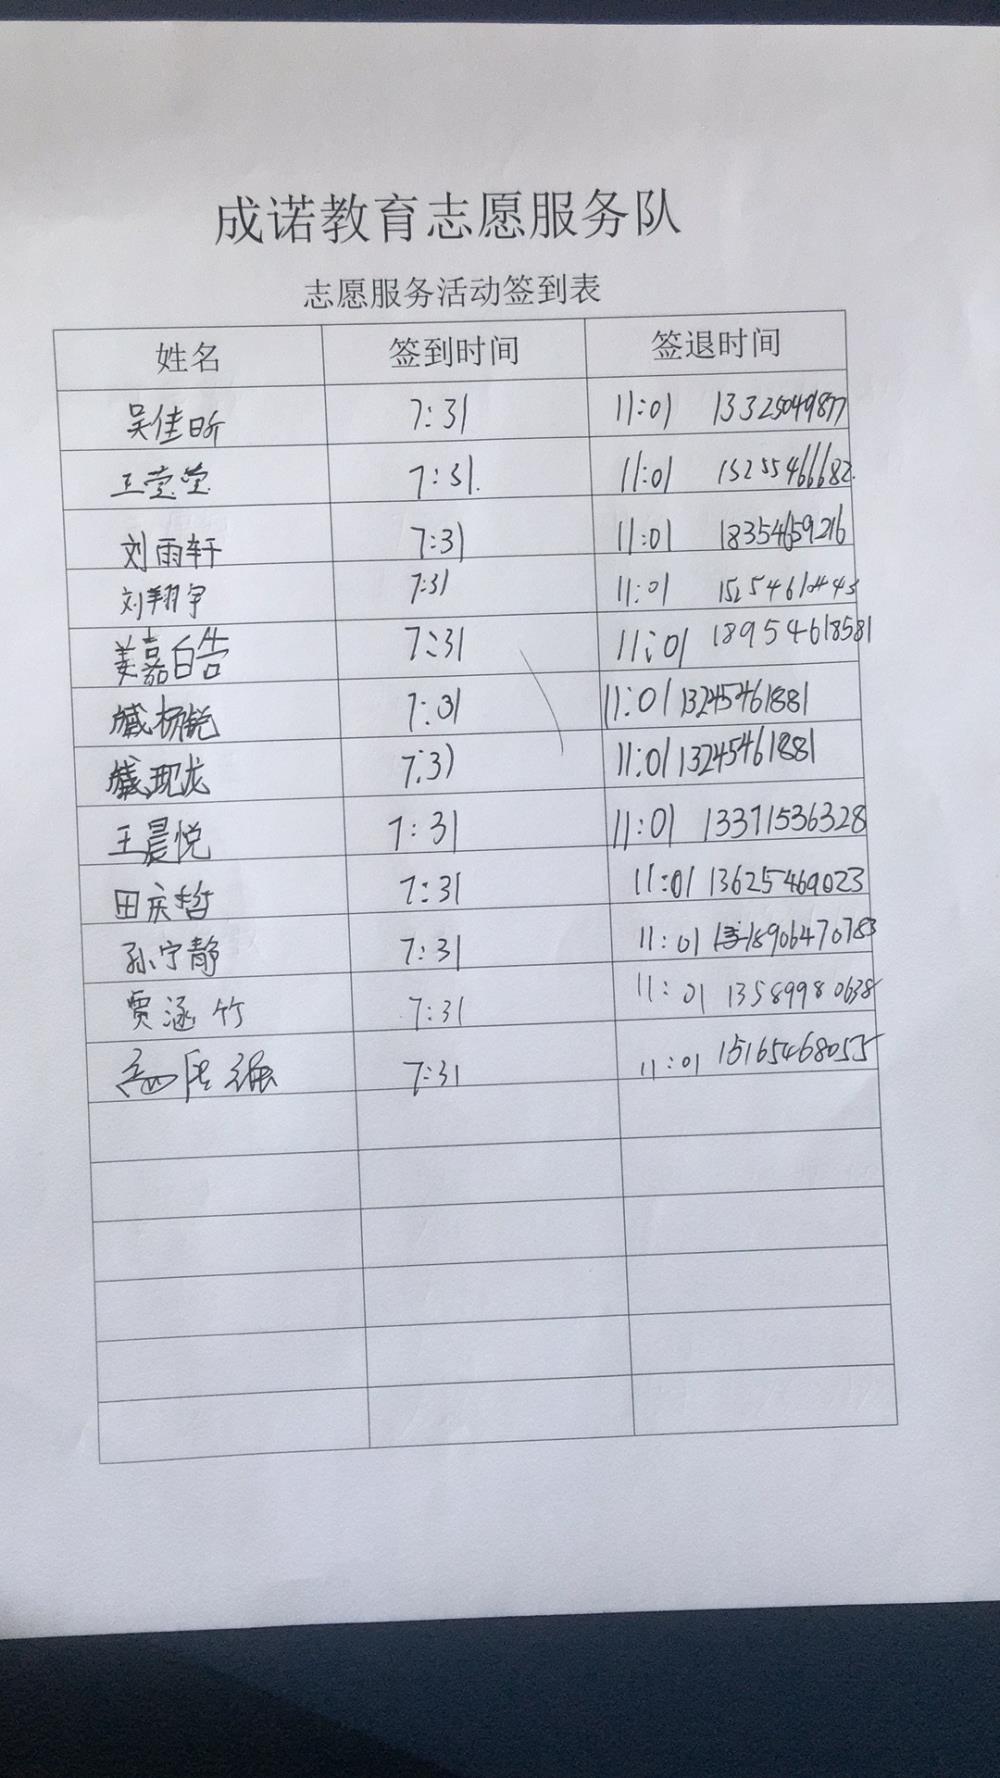 成诺教育志愿服务队
志愿服务活动签到表
姓名 签到时间 签退时间
吴佳昕 7:31 11:01 13325049877
王莹莹 7:31. 11:01 15255466682.
刘雨轩 7:31 11:01 18354659216
刘翔宇 7:31 11:01
姜嘉皓 7:31 11:01 18954618581
臧杨锐 7:31 11:01 13245461881
臧现龙 7:31 11:01 13245461881
王晨悦 7:31 11:01 13371536328
田庆哲 7:31 11:01 13625469023
孙宁静 7:31 11:01 18906470783
贾涵竹 7:31 11:01 13589980638
7:31 11:01 15165468055